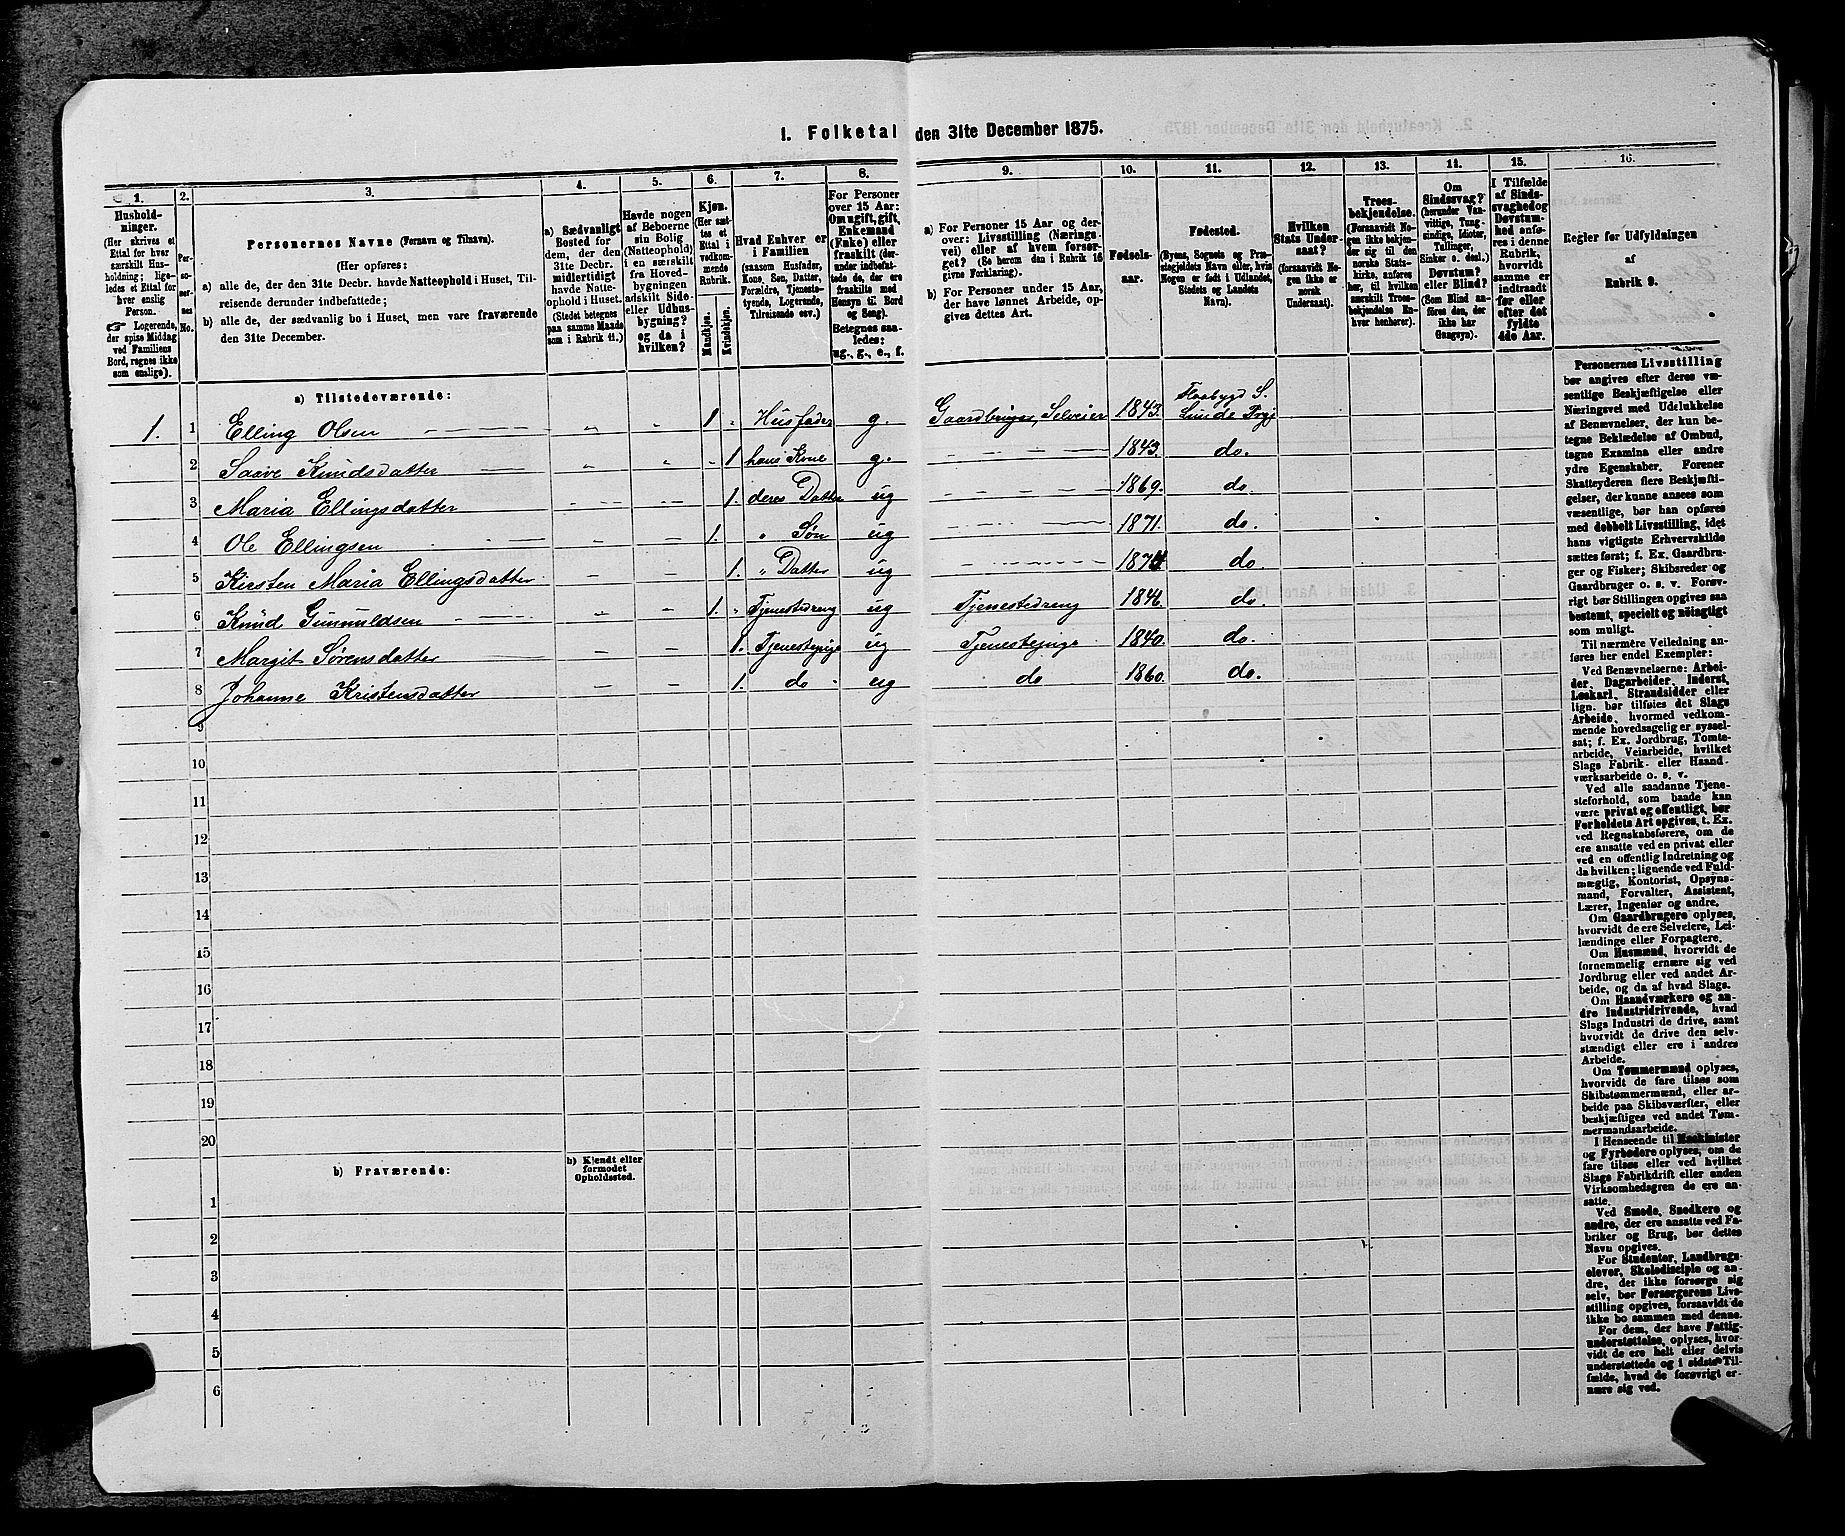 1. Folketal den 31te December 1875.
1.
Hushold-
ninger.
(Her skrives et
Ettal for hver
særskilt Hus-
holdning; lige-
ledes et Ettal for
hver enslig
Person.
☞ Logerende,
der spise Middag
ved Familiens
Bord, regnes ikke
som enslige).
2.
Per-
so-
ner-
nes
No.
3.
Personernes Navne (Fornavn og Tilnavn).
(Her opføres:
a) alle de, der den 31te Decbr. havde Natteophold i Huset, Til-
reisende derunder indbefattede;
b) alle de, der sædvanlig bo i Huset, men vare fraværende
den 31te December.
4.
a) Sædvanligt
Bosted for
dem, der den
31te Decbr.
midlertidigt
havde Natte-
ophold i Huset.
(Stedet betegnes
paa samme Maade
som i Rubrik 11.)
5.
Havde nogen
af Beboerne
sin Bolig
(Natteophold)
i en særskilt
fra Hoved-
bygningen
adskilt Side-
eller Udhus-
bygning?
og da i
hvilken?
6.
Kjøn.
(Her sæt-
tes et
Ettal i
vedkom-
mende
Rubrik.
Mandkjøn.
Kvindekjøn.
7.
Hvad Enhver er
i Familien
(saasom Husfader,
Kone, Søn, Datter,
Forældre, Tjeneste-
tyende, Logerende,
Tilreisende osv.)
8.
For Personer
over 15 Aar:
Om ugift, gift,
Enkemand
(Enke) eller
fraskilt (der-
under indbefat-
tede de, der ere
fraskilte med
Hensyn til Bord
og Seng).
Betegnes saa-
ledes:
ug., g., e., f.
9.
a) For Personer 15 Aar og der-
over: Livsstilling (Nærings-
vei) eller af hvem forsør-
get? (Se herom den i Rubrik 16
givne Forklaring).
b) For Personer under 15 Aar,
der have lønnet Arbeide, op-
gives dettes Art.
10.
Fødsels-
aar.
11.
Fødested.
(Byens, Sognets og Præ-
stegjeldets Navn eller, hvis
Nogen er født i Udlandet,
Stedets og Landets
Navn).
12.
Hvilken
Stats Under-
saat?
(forsaavidt No-
gen ikke er
norsk
Undersaat).
13.
Troes-
bekjendelse.
(Forsaavidt No-
gen ikke bekjen-
der sig til den
norske Stats-
kirke, anføres
her, til hvilken
særskilt Troes-
bekjendelse En-
hver henhører).
14.
Om
Sindssvag?
(herunder Van-
vittige, Tung-
sindige, Idioter,
Tullinger,
Sinker o. desl.)
Døvstum?
eller Blind?
(Som Blind an-
føres den, der
ikke har
Gangsyn).
15.
I Tilfælde
af Sinds-
svaghed og
Døvstum-
hed anfø-
res i denne
Rubrik,
hvorvidt
samme er
indtraadt
før eller
efter det
fyldte
4de Aar.
16.
Regler for Udfyldningen
af
Rubrik 9.
a) Tilstedeværende:
1. 1 Elling Olsen 1 Husfader g. Gaardbruger, Selveier 1843. Flaabygd S.
Lunde Prgj
2 Saave Knudsdatter 1 hans Kone g. 1843. do.
3 Maria Ellingsdatter 1. deres Datter ug 1869. do.
4 Ole Ellingsen 1. " Søn ug 1871. do.
5 Kirsten Maria Ellingsdatter 1. " Datter ug 1874 do.
6 Knud Gunnuldsen 1. Tjenestedreng ug Tjenestedreng 1846. do.
7 Margit Sørensdatter 1. Tjenestepige ug Tjenestepige 1840. do.
8 Johanne Kristensdatter 1. do ug do 1860. do.
9
10
11
12
13
14
15
16
17
18
19
20
b) Fraværende:
b) Kjendt eller
formodet
Opholdssted.
1
2
3
4
5
6
Personernes Livsstilling
bør angives efter deres væ-
sentlige Beskjæftigelse eller
Næringsvei med Udelukkelse
af Benævnelser, der kun be-
tegne Beklædelse af Ombud,
tagne Examina eller andre
ydre Egenskaber. Forener
Skatteyderen flere Beskjæfti-
gelser, der kunne ansees som
væsentlige, bør han opføres
med dobbelt Livsstilling, idet
hans vigtigste Erhvervskilde
sættes først; f. Ex. Gaardbru-
ger og Fisker; Skibsreder og
Gaardbruger o. s. v. Forøv-
rigt bør Stillingen opgives saa
bestemt, specielt og nøiagtigt
som muligt.
Til nærmere Veiledning an-
føres her endel Exempler:
Ved Benævnelserne: Arbei-
der, Dagarbeider, Inderst,
Løskarl, Strandsidder eller
lign. bør tilføies det Slags
Arbeide, hvormed vedkom-
mende hovedsagelig er syssel-
sat; f. Ex. Jordbrug, Tomte-
arbeide, Veiarbeide, hvilket
Slags Fabrik- eller Haand-
værksarbeide o. s. v.
Ved alle saadanne Tjene-
steforhold, som baade kan
være privat og offentligt, bør
Forholdets Art opgives, t. Ex.
ved Regnskabsførere, om de
ere ansatte ved en privat eller
ved en offentlig Indretning og
da hvilken; lignende ved Fuld-
mægtig, Kontorist, Opsyns-
mand, Forvalter, Assistent,
Lærer, Ingeniør og andre.
Om Gaardbrugere oplyses,
hvorvidt de ere Selveiere, Lei-
lændinge eller Forpagtere.
Om Husmænd, hvorvidt de
fornemmelig ernære sig ved
Jordbrug eller ved andet Ar-
beide, og da af hvad Slags.
Om Haandværkere og an-
dre Industridrivende, hvad
Slags Industri de drive, samt
hvorvidt de drive den selv-
stændigt eller ere i andres
Arbeide.
Om Tømmermænd oplyses,
hvorvidt de fare tilsøs som
Skibstømmermænd, eller ar-
beide paa Skibsværfter, eller
beskjæftiges ved andet Tøm-
mermandsarbeide.
I Henseende til Maskinister
og Fyrbødere oplyses, om de
fare tilsøs eller ved hvilket
Slags Fabrikdrift eller anden
Virksomhedsgren de ere an-
satte.
Ved Smede, Snedkere og
andre, der ere ansatte ved Fa-
briker og Brug, bør dettes
Navn opgives.
For Studenter, Landbrugs-
elever, Skoledisciple og an-
dre, der ikke forsørge sig
selv, bør Forsørgerens Livs-
stilling opgives, forsaavidt de
ikke bo sammen med denne.
For dem, der have Fattig-
understøttelse, oplyses, hvor-
vidt de ere helt eller delvis
understøttede og i sidste Til-
fælde, hvad de forøvrigt er-
nære sig ved.